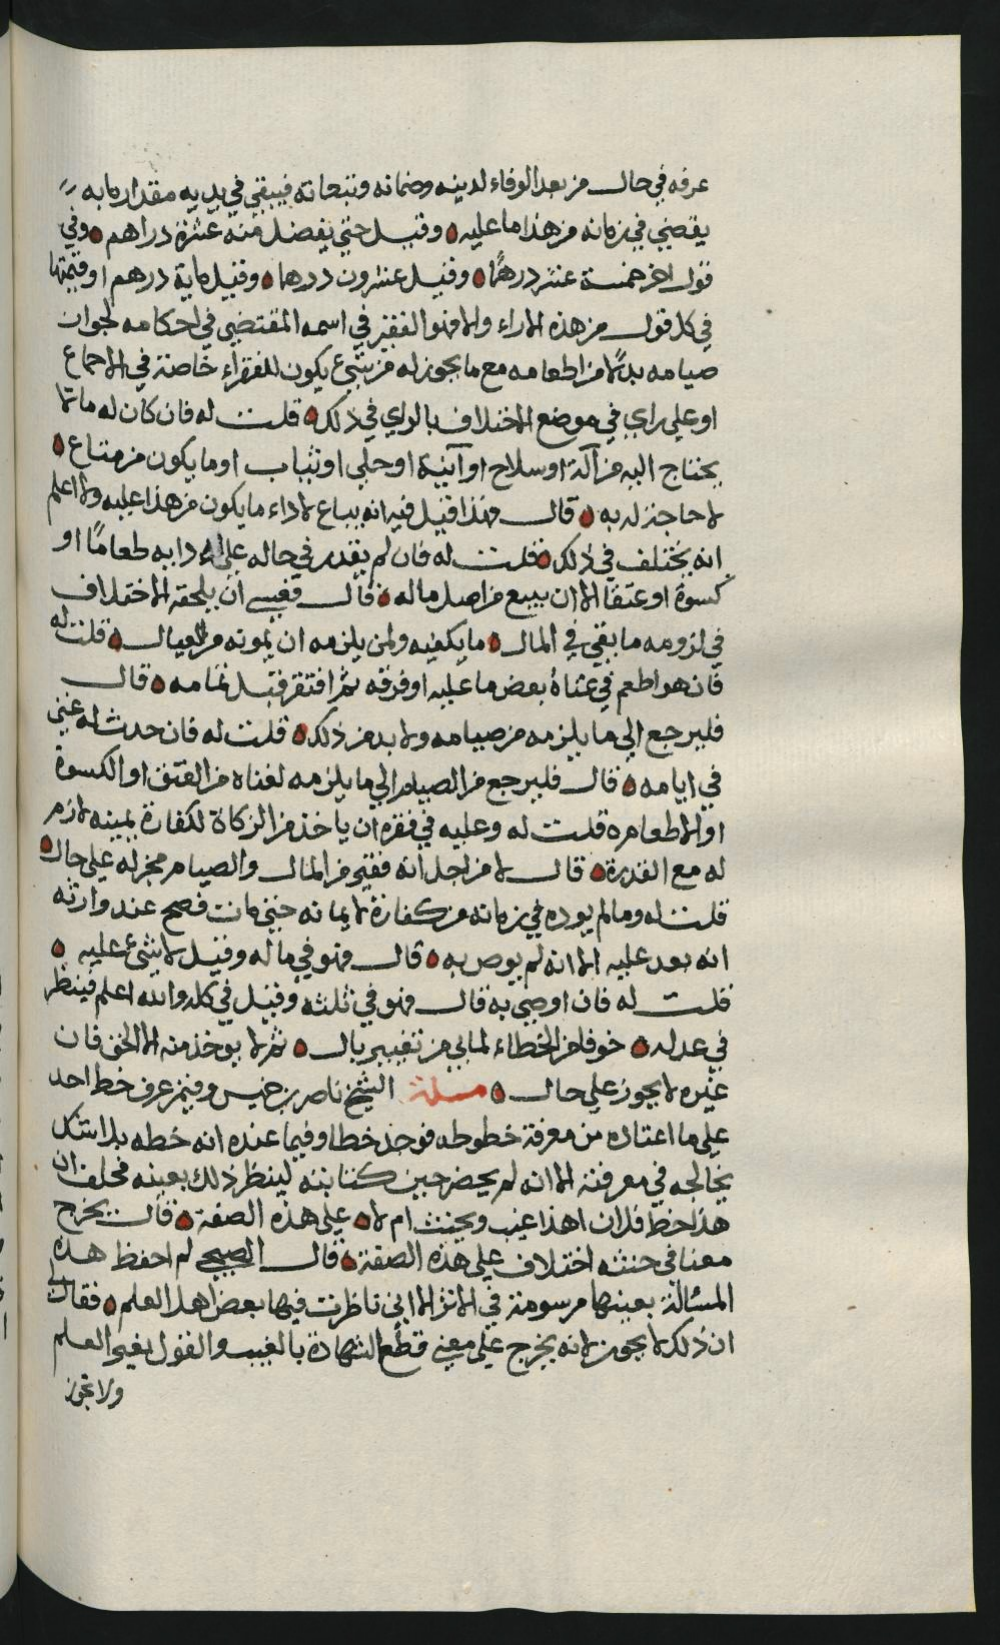 عرفه في حال من بعد الوفاء لدينه وضمانه وتبعاته فيبقى في يديه مقدار ما به
يقضي في زمانه من هذا ما عليه وقيل حتى يفضل منه عشرة دراهم وفي
قول اخر خمسة عشر درهما وقيل عشرون درهما وقيل ماية درهم او قيمتها
في كل قول من هذه الاراء والا فهو الفقير في اسمه المقتضي في احكامه لجواز
صيامه بدلا من اطعامه مع ما يجوز له من شيء يكون للفقراء خاصة في الاجماع
او على راي في موضع الاختلاف بالراي في ذلك قلت له فان كان له مالا
يحتاج اليه من آلة او سلاح او آنية او حلي او ثياب او ما يكون من متاع
لا حاجة له به قال فهذا قيل فيه انه يباع لاداء ما يكون من هذا عليه ولا اعلم
انه يختلف في ذلك قلت له فان لم يقدر في حاله على ادايه طعاما او
كسوة او عتقا الا ان يبيع من اصل ماله قال فعسى ان يلحقه الاختلاف
في لزومه ما بقي في المال ما يكفيه ولمن يلزمه ان يمونه من العيال قلت له
فان هو اطعم في غناه بعض ما عليه او فرقه ثم افتقر قبل تمامه قال
فليرجع الى ما يلزمه من صيامه ولا بد من ذلك قلت له فان حدث له غنى
في ايامه قال فليرجع من الصيام الى ما يلزمه لغناه من العتق او الكسوة
او الاطعام قلت له وعليه في فقره ان ياخذ من الزكاة لكفارة يمينه لازم
له مع القدرة قال لا من اجل انه فقير من المال والصيام مجز له على حال
قلت له وما لم يوده في زمانه من كفارة لايمانه حتى مات فصح عند وارثه
انه بعد عليه الا انه لم يوص به قال فهو في ماله وقيل لا شيء عليه
قلت له فان اوصى به قال فهو في ثلثه وقيل في كله والله اعلم فينظر
في عدله خوفا من الخطاء لما بي من تغيير بال ثم لا يوخذ منه الا الحق فان
غيره لا يجوز على حال مسلة الشيخ ناصر بن خميس وفيمن عرف خط احد
على ما اعتاده من معرفة خطوطه فوجد خطا وفيما عنده انه خطه بلا شك
يخالجه في معرفته الا انه لم يحضر حين كتابته لينظر ذلك بعينه فحلف ان
هذا خط فلان اهذا غيب ويحنث ام لا على هذه الصفة قال يخرج
معنا في حنثه اختلاف على هذه الصفة قال الصبحي لم احفظ هذه
المسئالة بعينها مرسومة في الاثر الا اني ناظرت فيها بعض اهل العلم فقال لي
ان ذلك لا يجوز لانه يخرج على معنى قطع الشهادة بالغيب والقول بغير العلم
ولا تجوز